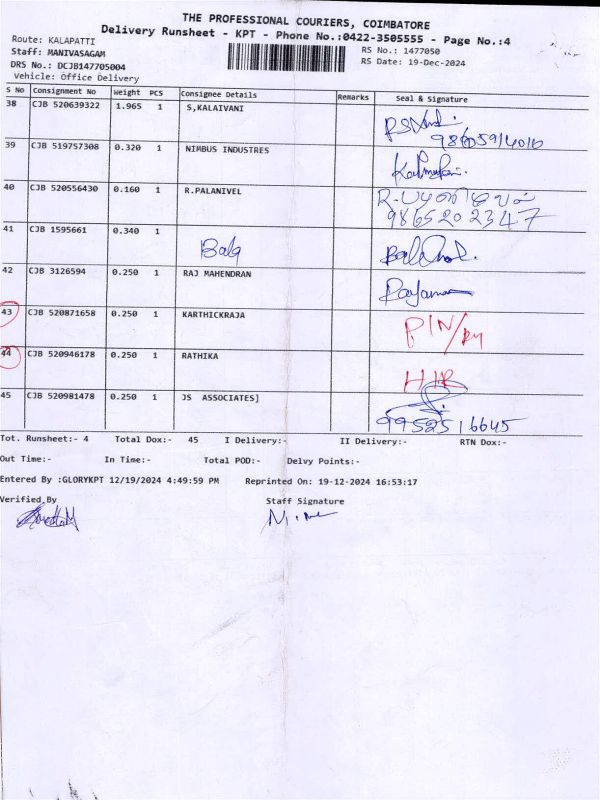 THE PROFESSIONAL COURIERS, COIMBATORE
Delivery Runsheet - KPT - Phone No.:0422-3505555 - Page No.:4
Route: KALAPATTI
Staff: MANIVASAGAM
DRS No.: DCJB147705004
Vehicle: Office Delivery
RS No.: 1477050
RS Date: 19-Dec-2024
S No Consignment No Weight PCS Consignee Details Remarks Seal & Signature
38 CJB 520639322 1.965 1 S,KALAIVANI
39 CJB 519757308 0.320 1 NIMBUS INDUSTRES
40 CJB 520556430 0.160 1 R.PALANIVEL R. பழனிவேல்
9865202347
41 CJB 1595661 0.340 1 Bala
42 CJB 3126594 0.250 1 RAJ MAHENDRAN
43 CJB 520871658 0.250 1 KARTHICKRAJA
44 CJB 520946178 0.250 1 RATHIKA
45 CJB 520981478 0.250 1 JS ASSOCIATES]
9952516645
Tot. Runsheet:- 4 Total Dox:- 45 I Delivery:- II Delivery:- RTN Dox:-
Out Time:- In Time:- Total POD:- Delvy Points:-
Entered By :GLORYKPT 12/19/2024 4:49:59 PM Reprinted On: 19-12-2024 16:53:17
Verified By Staff Signature